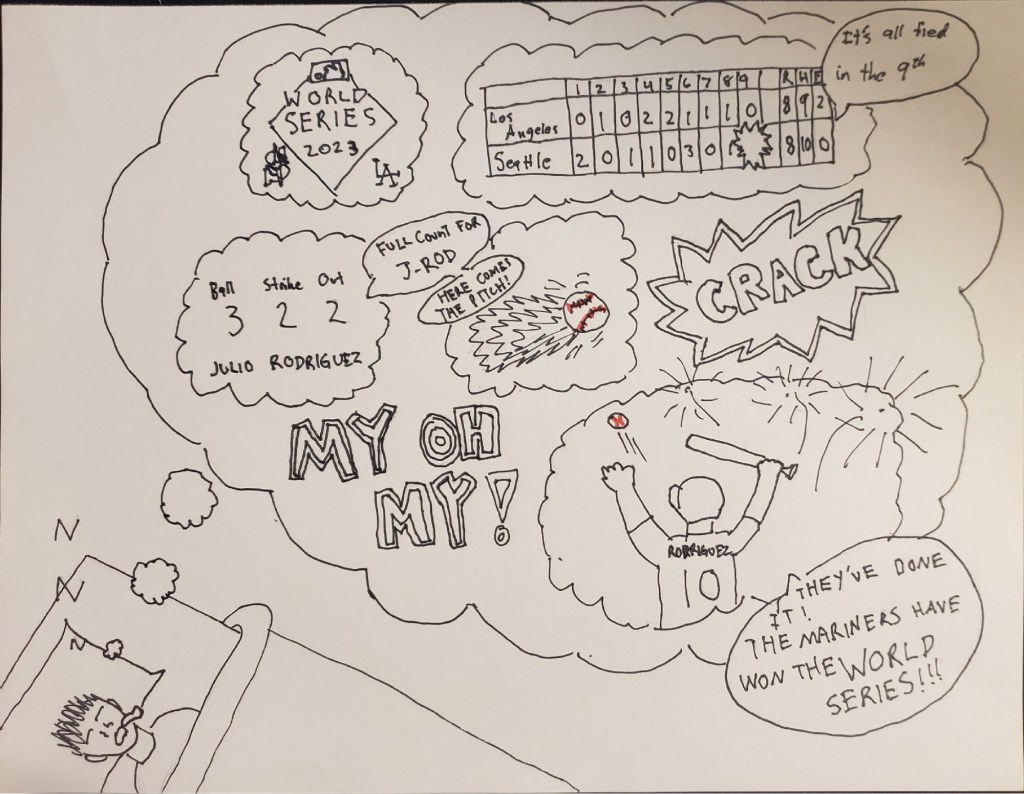 WORLD
SERIES
2023
S
LA
1 2 3 4 5 6 7 8 9 R H E
Los
Angeles 0 1 0 2 2 1 1 1 0 8 9 2
Seattle 2 0 1 1 0 3 0 1 8 10 0
It's all tied
in the 9th
Ball Strike Out
3 2 2
JULIO RODRIGUEZ
FULL COUNT FOR
J-ROD
HERE COMES
THE PITCH!
CRACK
MY OH
MY!
RODRIGUEZ
10
THEY'VE DONE
IT!
THE MARINERS HAVE
WON THE WORLD
SERIES!!!
N
N
N